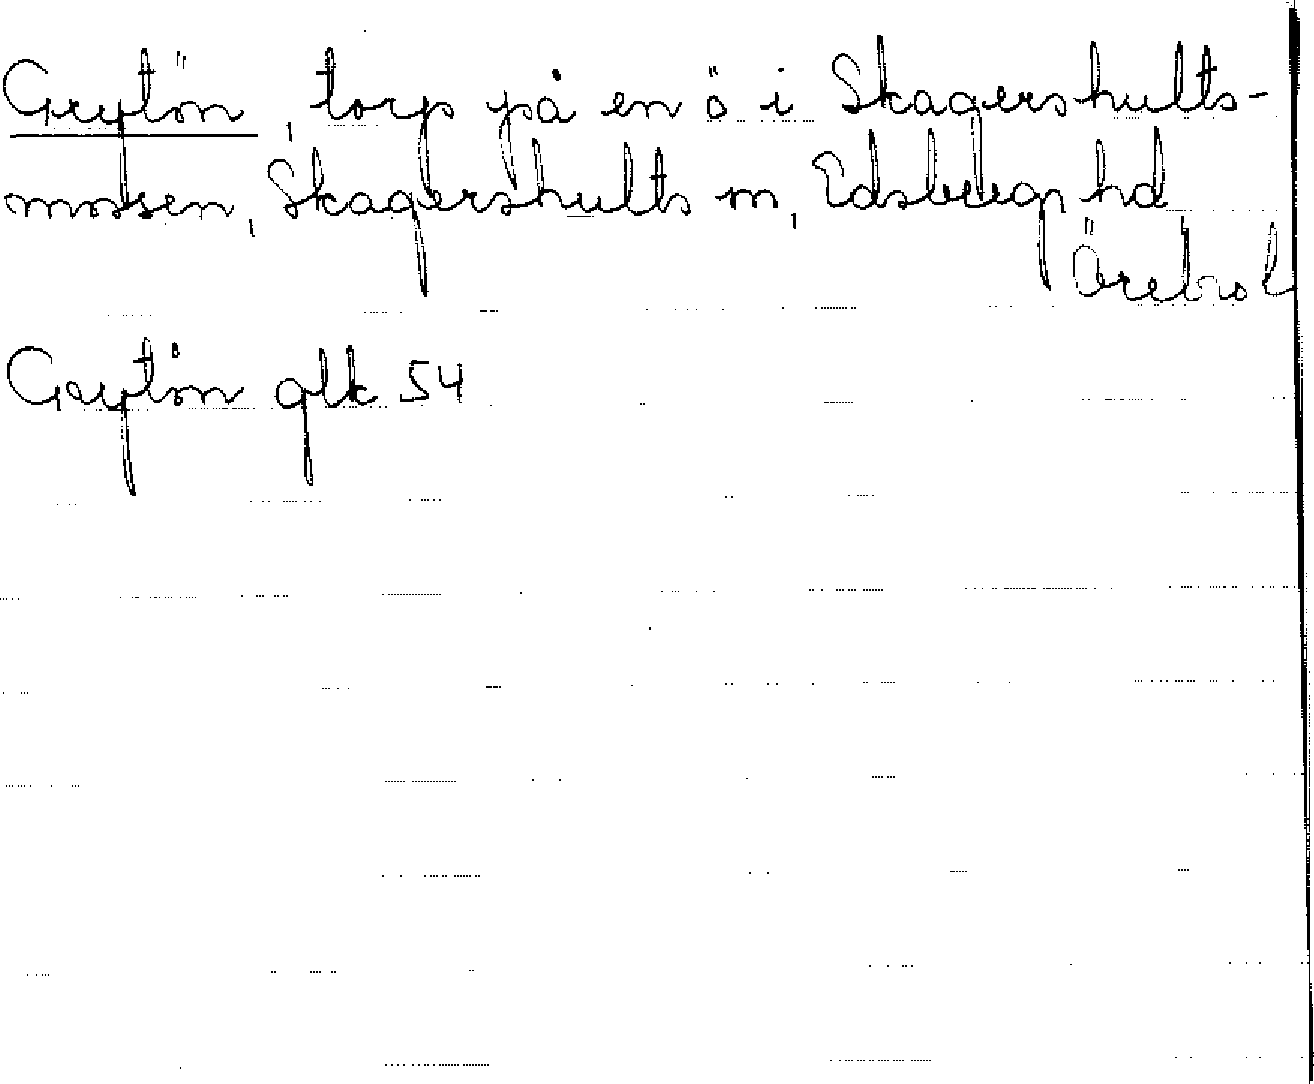 Grytön, torp på en ö i Skagershults-
mossen, Skagershults sn, Edsbergs hd
Örebro l
Grytön glk 54